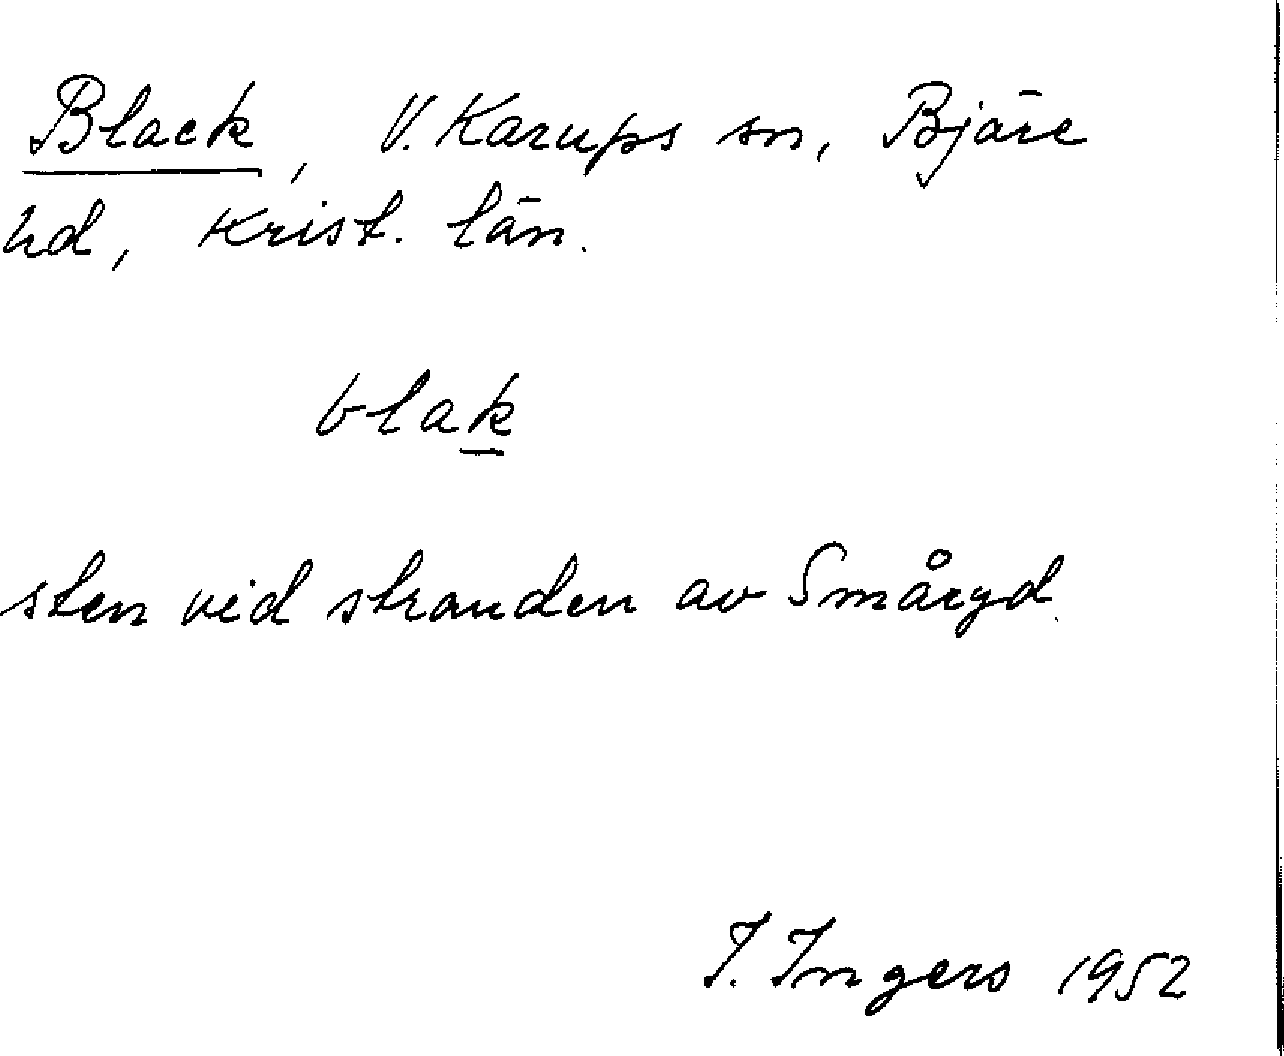 Black, V. Karups sn, Bjäre
hd, Krist. län.
blak
sten vid stranden av Småryd.
I. Ingers 1952